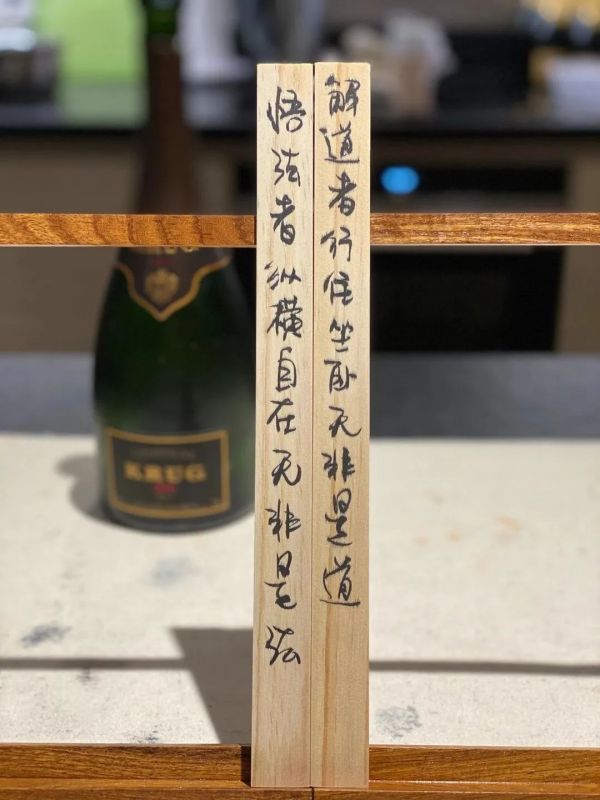 解道者行住坐卧无非是道
悟法者纵横自在无非是法
KRUG